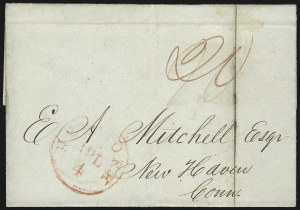 E A Mitchell Esqr
New Haven
Conn